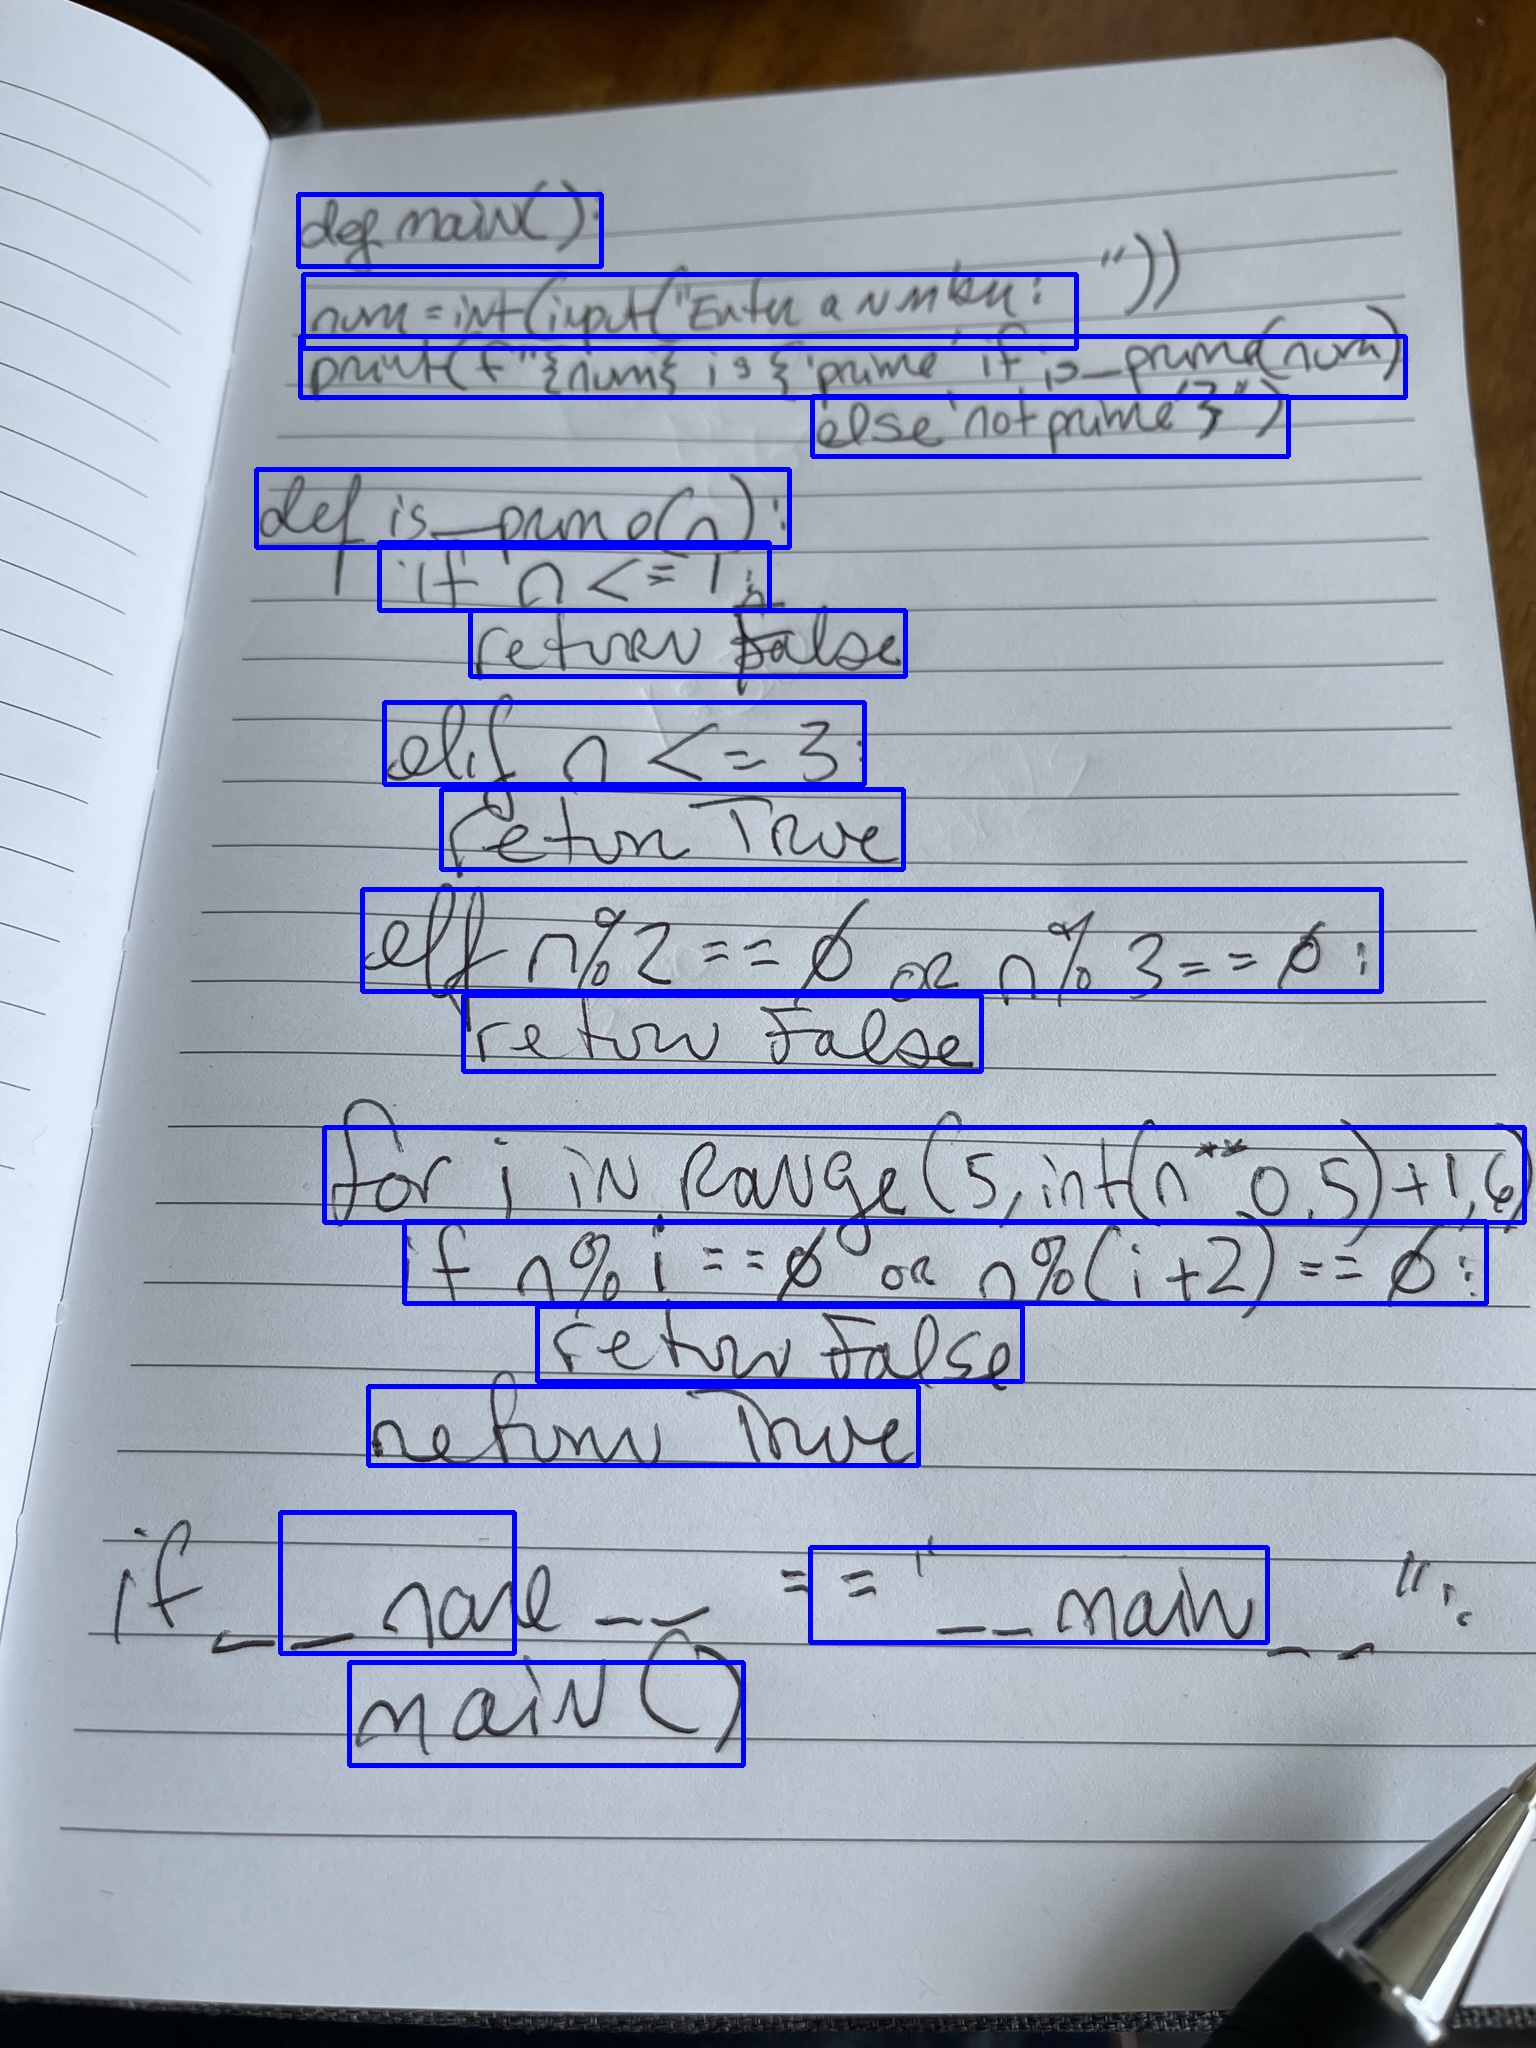 def main():
num = int(input("Enter a number: "))
print(f"{num} is {'prime' if is_prime(num)
else 'not prime'}")
def is_prime(n):
if n <= 1:
return False
elif n <= 3:
return True
elif n % 2 == 0 or n % 3 == 0:
return False
for i in range(5, int(n ** 0.5) + 1, 6)
if n % i == 0 or n % (i + 2) == 0:
return False
return True
if __name__ == "__main__":
main()